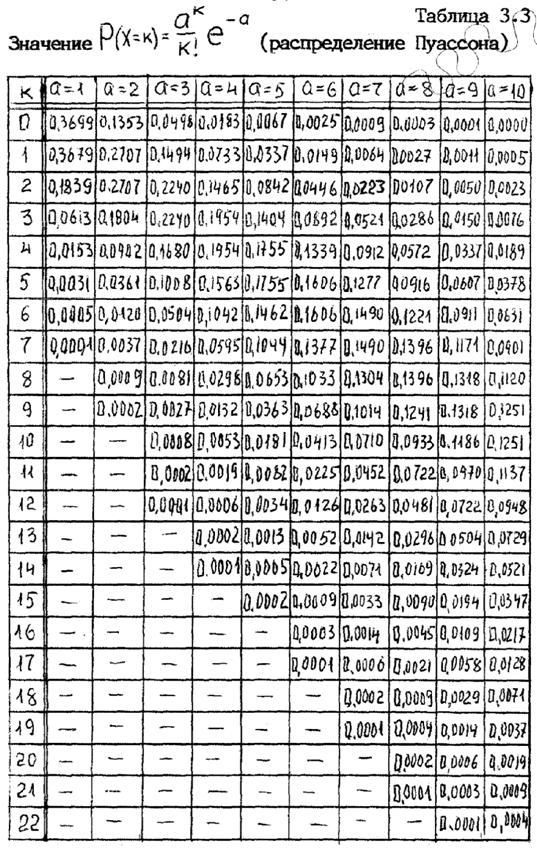 Таблица 3.3
Значение P(X=к)= a^к/к! e^-a (распределение Пуассона)
к a=1 a=2 a=3 a=4 a=5 a=6 a=7 a=8 a=9 a=10
0 0,3699 0,1353 0,0498 0,0183 0,0067 0,0025 0,0009 0,0003 0,0001 0,0000
1 0,3679 0,2707 0,1494 0,0733 0,0337 0,0149 0,0064 0,0027 0,0011 0,0005
2 0,1839 0,2707 0,2240 0,1465 0,0842 0,0446 0,0223 0,0107 0,0050 0,0023
3 0,0613 0,1804 0,2240 0,1954 0,1404 0,0892 0,0521 0,0286 0,0150 0,0076
4 0,0153 0,0902 0,1680 0,1954 0,1755 0,1339 0,0912 0,0572 0,0337 0,0189
5 0,0031 0,0361 0,1008 0,1563 0,1755 0,1606 0,1277 0,0916 0,0607 0,0378
6 0,0005 0,0120 0,0504 0,1042 0,1462 0,1606 0,1490 0,1221 0,0911 0,0631
7 0,0001 0,0037 0,0216 0,0595 0,1044 0,1377 0,1490 0,1396 0,1171 0,0901
8 — 0,0009 0,0081 0,0298 0,0653 0,1033 0,1304 0,1396 0,1318 0,1120
9 — 0,0002 0,0027 0,0132 0,0363 0,0688 0,1014 0,1241 0,1318 0,1251
10 — — 0,0008 0,0053 0,0181 0,0413 0,0710 0,0933 0,1186 0,1251
11 — — 0,0002 0,0019 0,0082 0,0225 0,0452 0,0722 0,0970 0,1137
12 — — 0,0001 0,0006 0,0034 0,0126 0,0263 0,0481 0,0722 0,0948
13 — — — 0,0002 0,0013 0,0052 0,0142 0,0296 0,0504 0,0729
14 — — — 0,0001 0,0005 0,0022 0,0071 0,0169 0,0324 0,0521
15 — — — — 0,0002 0,0009 0,0033 0,0090 0,0194 0,0347
16 — — — — — 0,0003 0,0014 0,0045 0,0109 0,0217
17 — — — — — 0,0001 0,0006 0,0021 0,0058 0,0128
18 — — — — — — 0,0002 0,0009 0,0029 0,0071
19 — — — — — — 0,0001 0,0004 0,0014 0,0037
20 — — — — — — — 0,0002 0,0006 0,0019
21 — — — — — — — 0,0001 0,0003 0,0009
22 — — — — — — — — 0,0001 0,0004